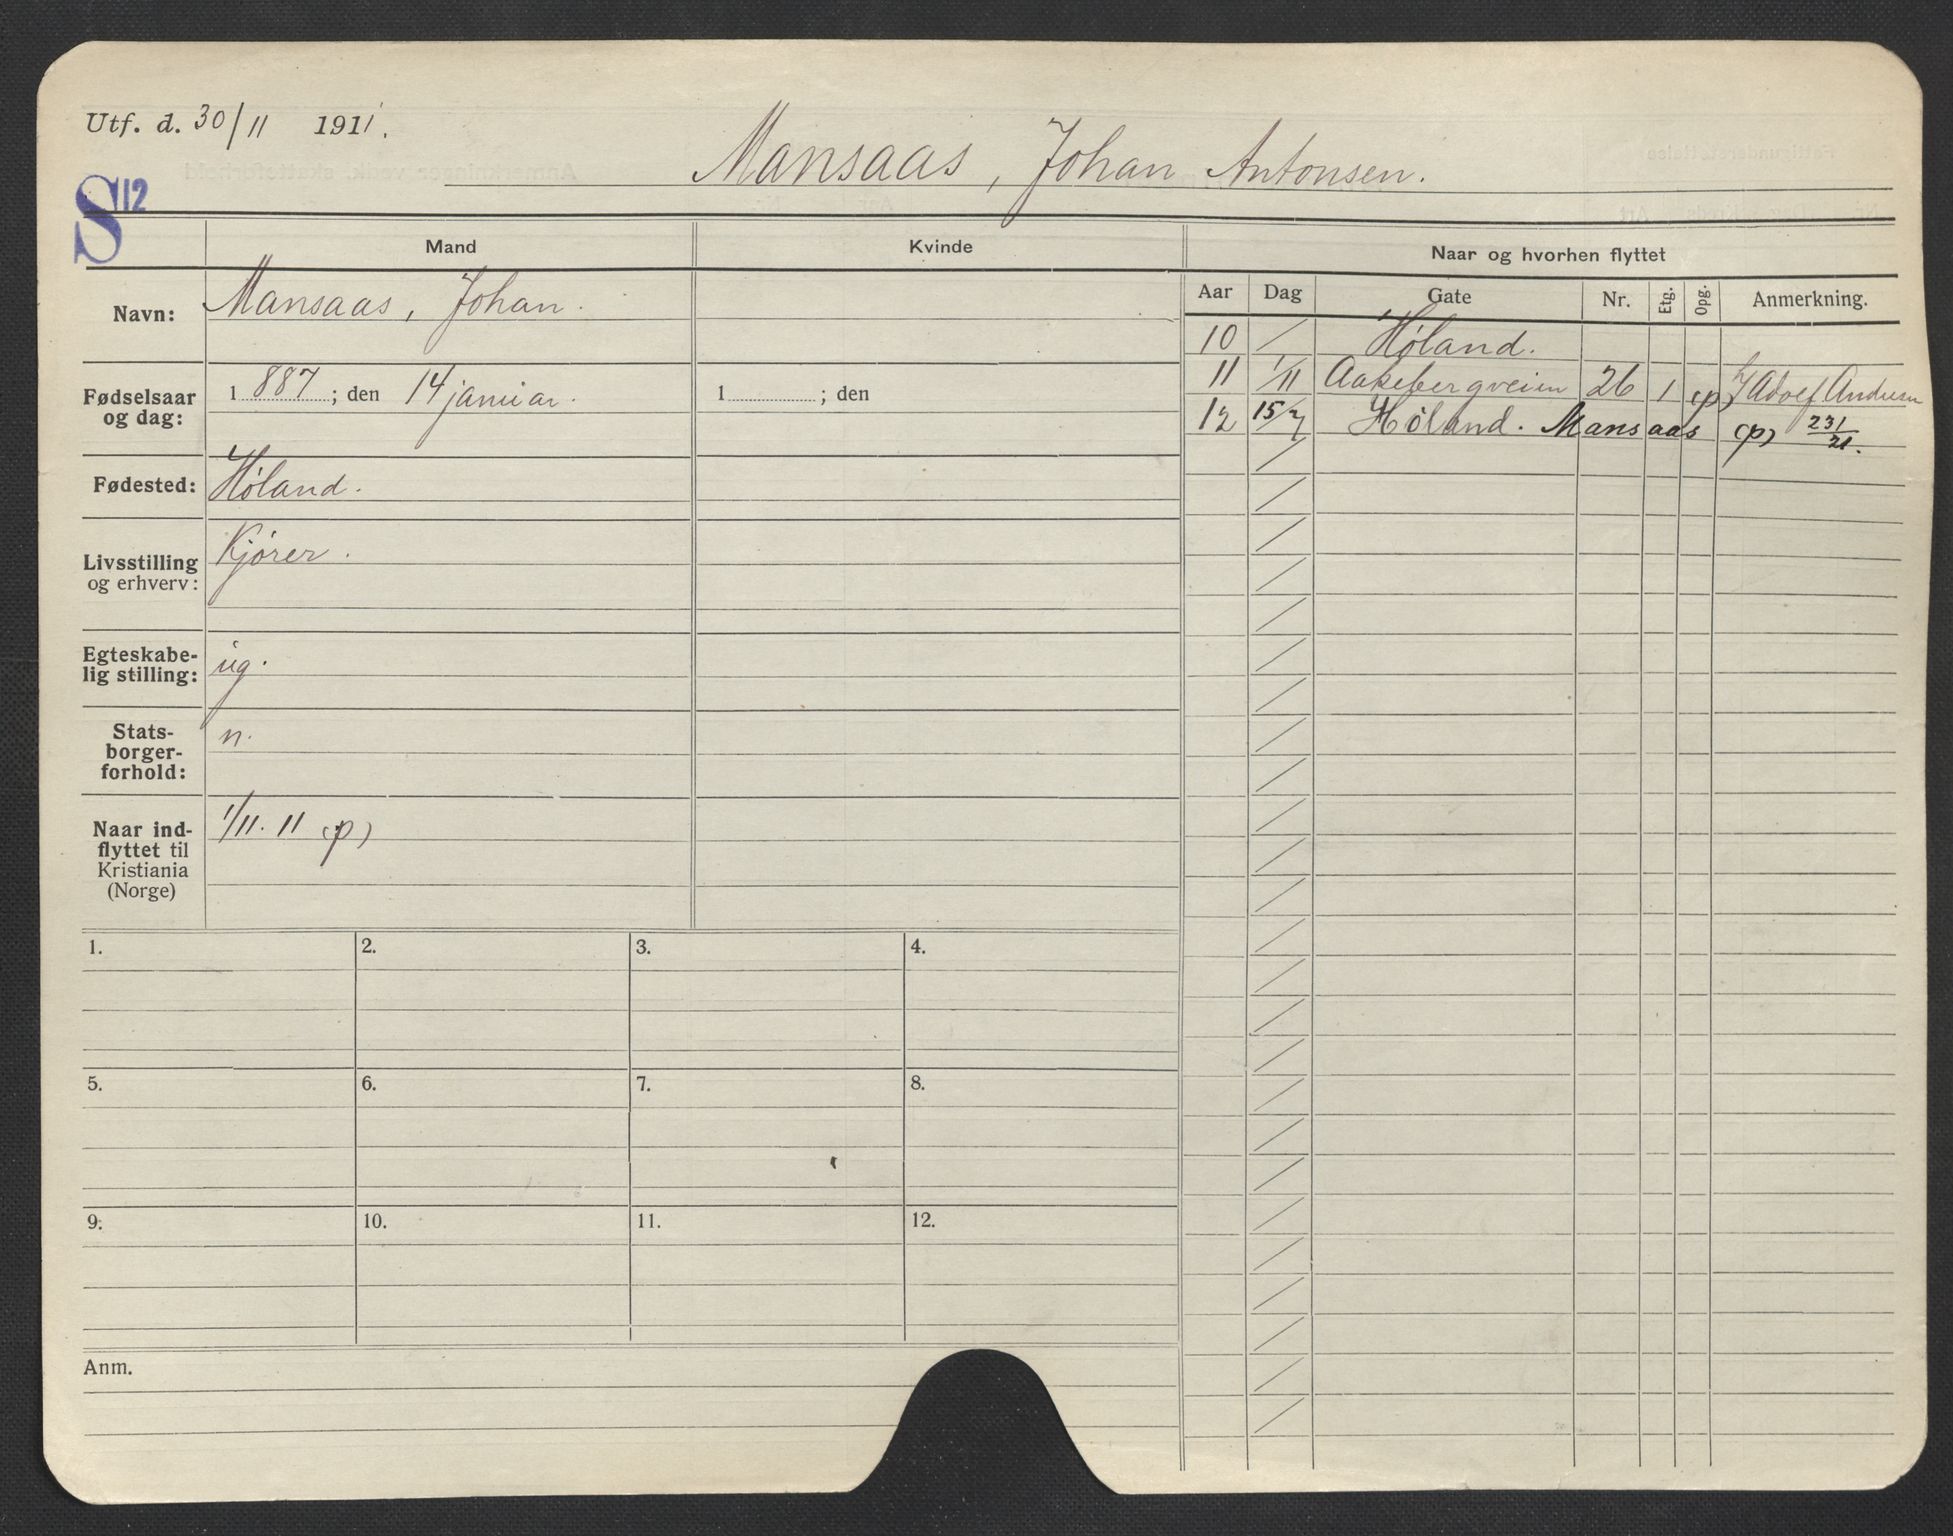 Utf. d. 30/11 1911.
Mansaas, Johan Antonsen.
S12
Mand
Kvinde
Naar og hvorhen flyttet
Aar Dag Gate Nr. Etg. Opg. Anmerkning.
Navn: Mansaas, Johan.
Fødselsaar og dag: 1887; den 14 januar. 1 ; den
Fødested: Høland.
Livsstilling og erhverv: Kjører.
Egteskabe-
lig stilling: ug.
Stats-
borger-
forhold: n.
Naar ind-
flyttet til
Kristiania
(Norge) 1/11. 11 (p)
10 / Høland.
11 1/11 Aakebergveien 26 1 (p) Adolf Andersen
12 15/7 Høland. Mansaas (p) 231/21.
1. 2. 3. 4.
5. 6. 7. 8.
9. 10. 11. 12.
Anm.